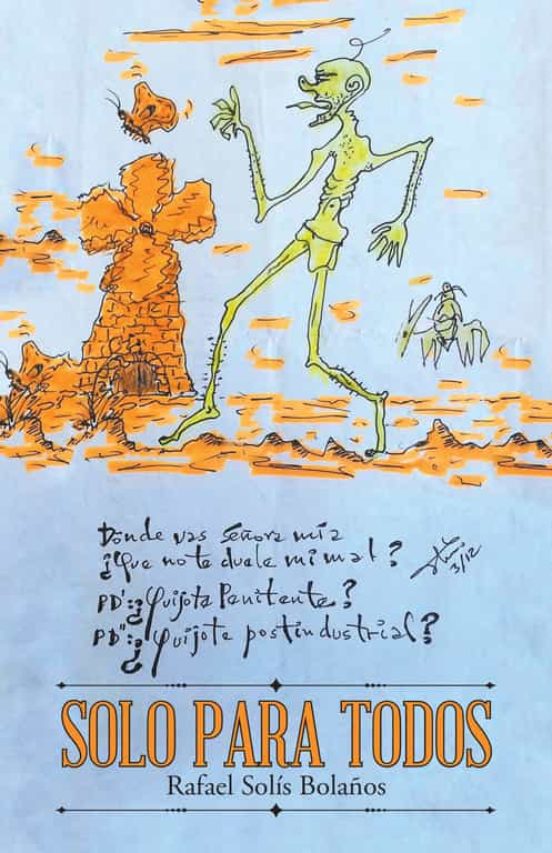 Donde vas Señora mía
¿¡Que no te duele mi mal?
PD': ¿Quijote Penitente?
PD": ¿Quijote postindustrial?
3/12
SOLO PARA TODOS
Rafael Solís Bolaños